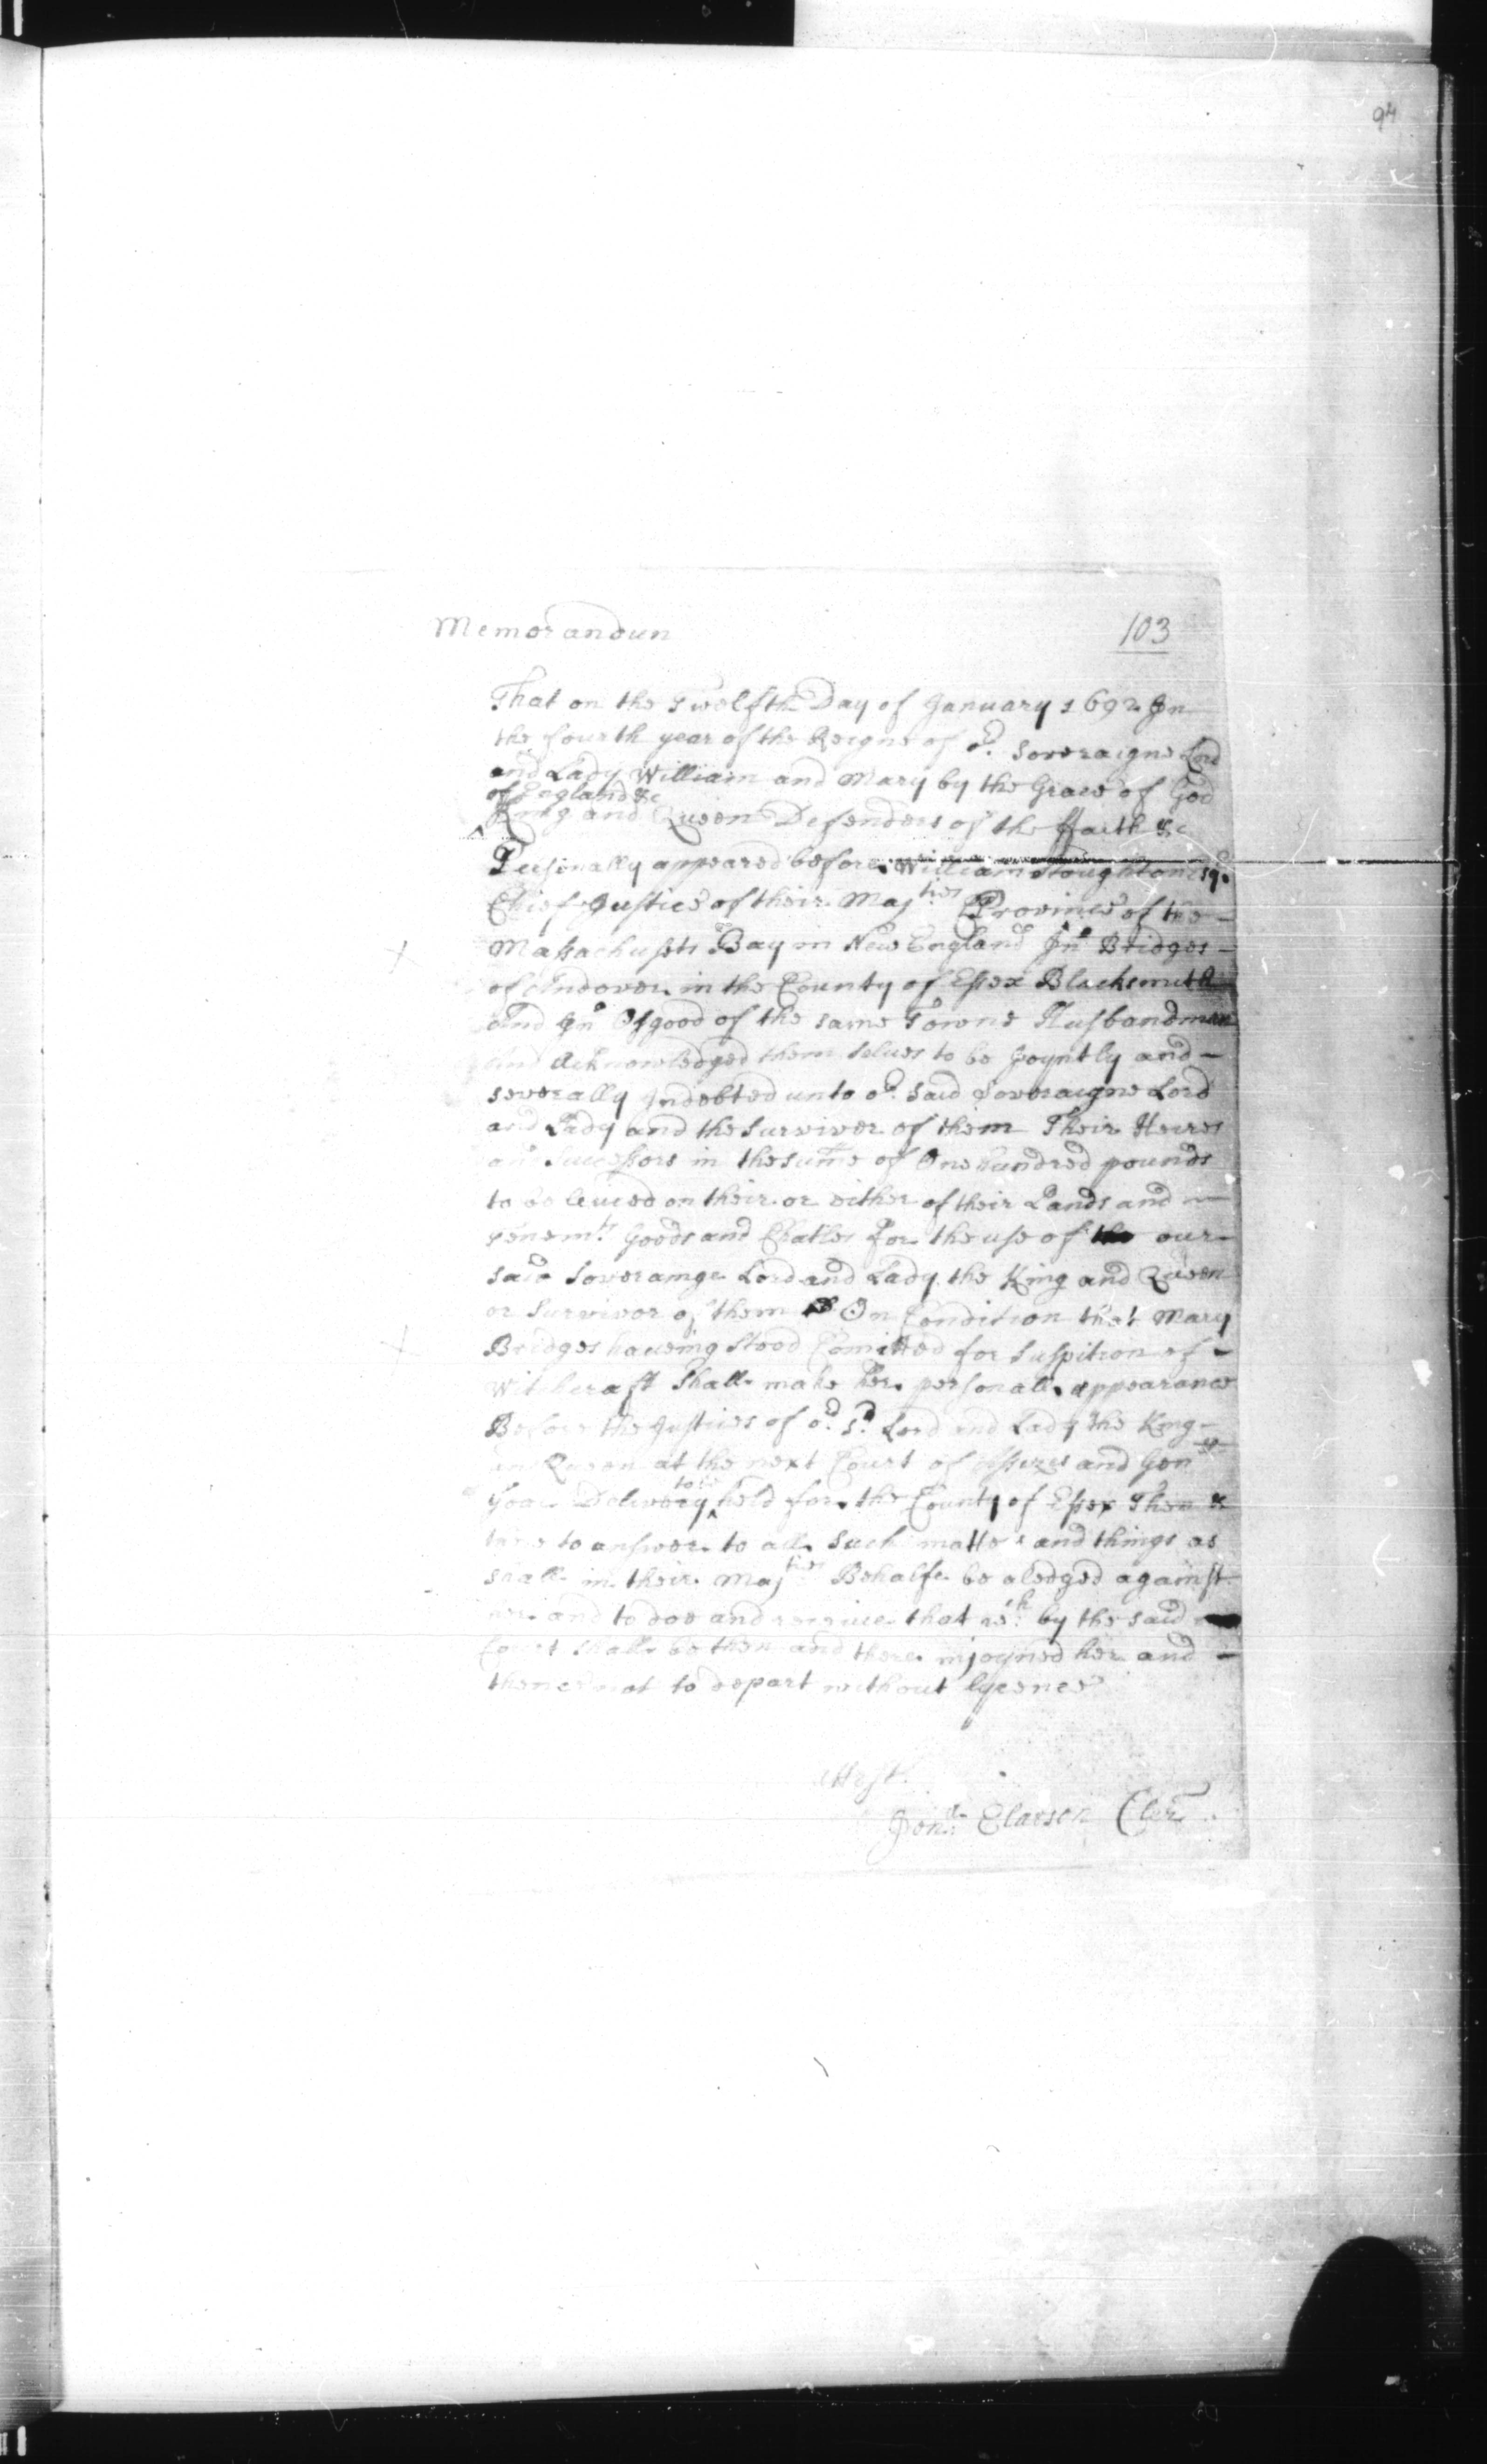 94
Memorandun 103
That on the Twelfth Day of January 1692 In
the fourth year of the Reigne of or. Soveraigne Lord
and Lady William and Mary by the Grace of God
of England &c
King and Queen Defenders of the ffaith &c
Personally appeared before William Stoughton Esqr.
Chief Justice of their Majties Province of the -
Massachusets Bay in New England Jno Bridges -
of Andover in the County of Essex Blacksmith
and Jno Osgood of the same Towne Husbandman
And Acknowledged them selves to be Joyntly and -
severally Indebted unto or. said Soveraigne Lord
and Lady and the Surviver of them Their Heires
and Successors in the sume of One hundred pounds
to be levied on their or either of their Lands and -
Tenemts Goods and Chatles for the use of the our -
said Soverainge Lord and Lady the King and Queen
or Survivor of them On Condition that Mary
Bridges haveing Stood Comitted for Suspition of -
Witchcraft Shall make her personall appearance
Before the Justices of or. sd. Lord and Lady the King -
and Queen at the next Court of Assizes and Gen
Goal Delivery held for the County of Essex Then &
to be
there to answer to all such matters and things as
shall in their Majties Behalfe be aledged against
her and to doe and receive that wch. by the said
Court shall be then and there injoyned her and -
thence not to depart without lycence
Attest.
Jona. Elatson Cler